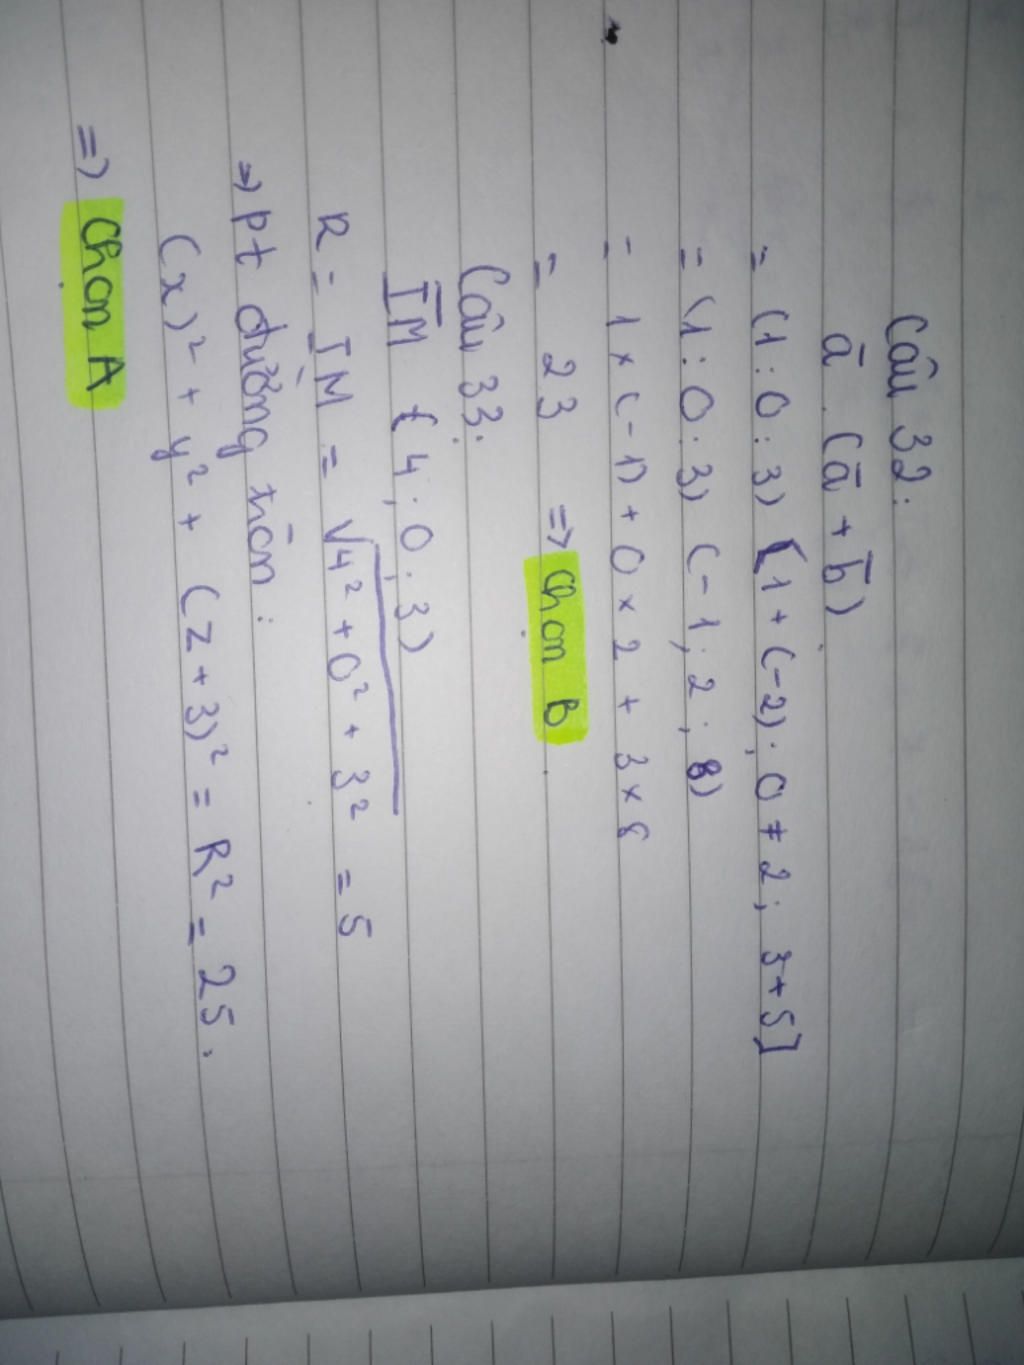 Câu 32:
ā . (ā + b̄)
= (1 : 0 : 3) [1 + (-2) ; 0 + 2 ; 3 + 5]
= (1 : 0 : 3) (-1 ; 2 ; 8)
= 1 × (-1) + 0 × 2 + 3 × 8
= 23 => Chọn B
Câu 33:
IM (4 ; 0 ; 3)
R = IM = √4² + 0² + 3² = 5
=> pt đường tròn :
(x)² + y² + (z + 3)² = R² = 25.
=> Chọn A